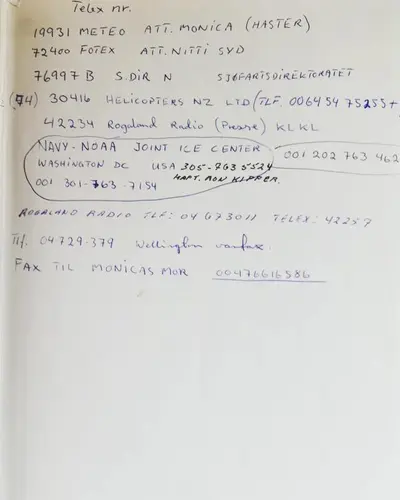 Telex nr.
19931 METEO ATT. MONICA (HASTER)
72400 FOTEX ATT. NITTI SYD
76997 B S.DIR N SJØFARTSDIREKTORATET
(74) 30416 HELICOPTERS NZ LTD (TLF. 006454 75255+
42234 Rogaland Radio (Presse) KLKL
NAVY-NOAA JOINT ICE CENTER 001 202 763 462
WASHINGTON DC USA 305-763 5524
001 301-763-7154 KAPT. RON
ROGALAND RADIO TLF: 04 673011 TELEX: 42257
Tlf. 04729-379 Wellington
FAX TIL MONICAS MOR 00476616586